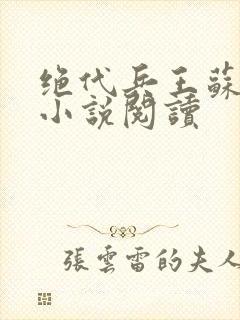 绝代兵王蘇
小說閱讀
張雲雷的夫人